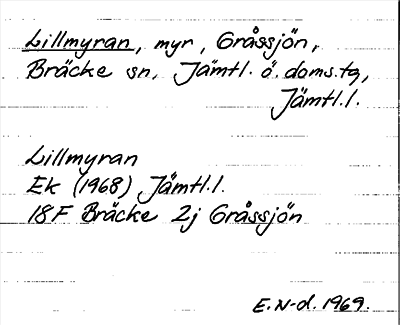 Lillmyran, myr, Gråssjön,
Bräcke sn, Jämtl. ö. doms.tg,
Jämtl.l.
Lillmyran
Ek (1968) Jämtl.l.
18F Bräcke 2j Gråssjön
E.N-d. 1969.